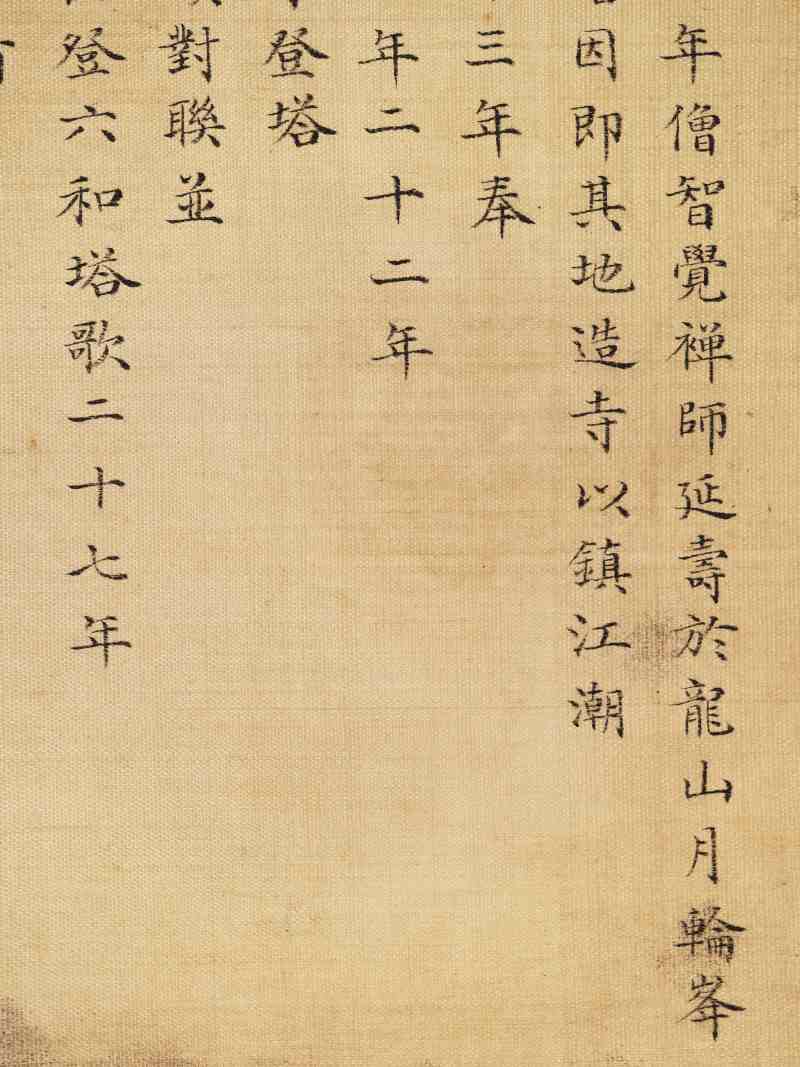 年僧智覺禅師延壽於龍山月輪峯
因即其地造寺以鎮江潮
三年奉
年二十二年
登塔
對聯並
登六和塔歌二十七年